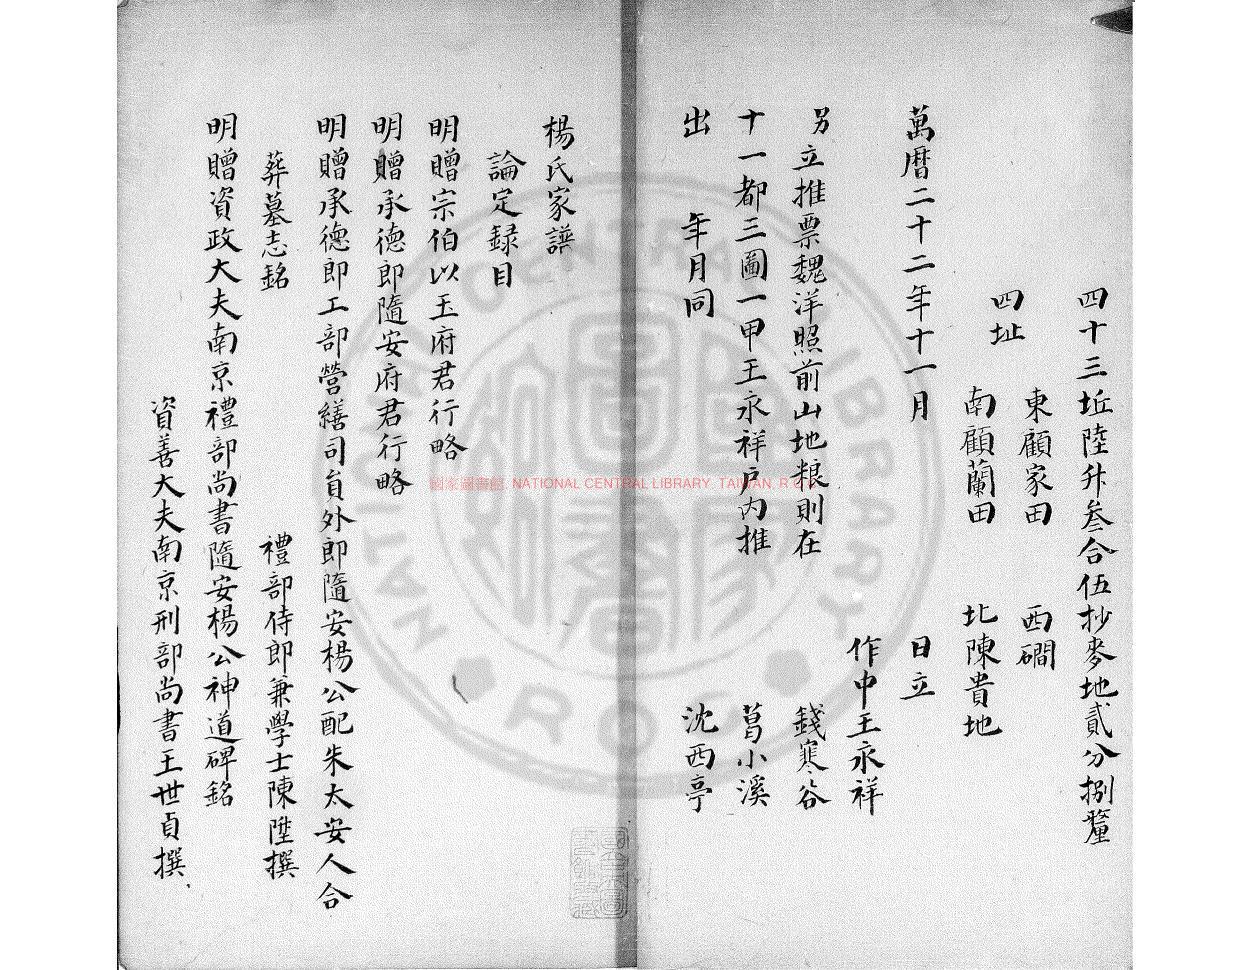 四十三坵陸升叁合伍抄麥地貳分捌釐
四址 東顧家田 西磵
南顧蘭田 北陳貴地
萬曆二十二年十一月 日立
作中王永祥
錢寒谷
葛小溪
沈西亭
另立推票魏洋照前山地粮則在
十一都三圖一甲王永祥戶內推
出 年月同
楊氏家譜
論定録目
明贈宗伯以玉府君行略
明贈承德郎隨安府君行略
明贈承德郎工部營繕司員外郎隨安楊公配朱太安人合
葬墓志銘 禮部侍郎兼學士陳陞撰
明贈資政大夫南京禮部尚書隨安楊公神道碑銘
資善大夫南京刑部尚書王世貞撰
國家圖書館 NATIONAL CENTRAL LIBRARY, TAIWAN, R.O.C